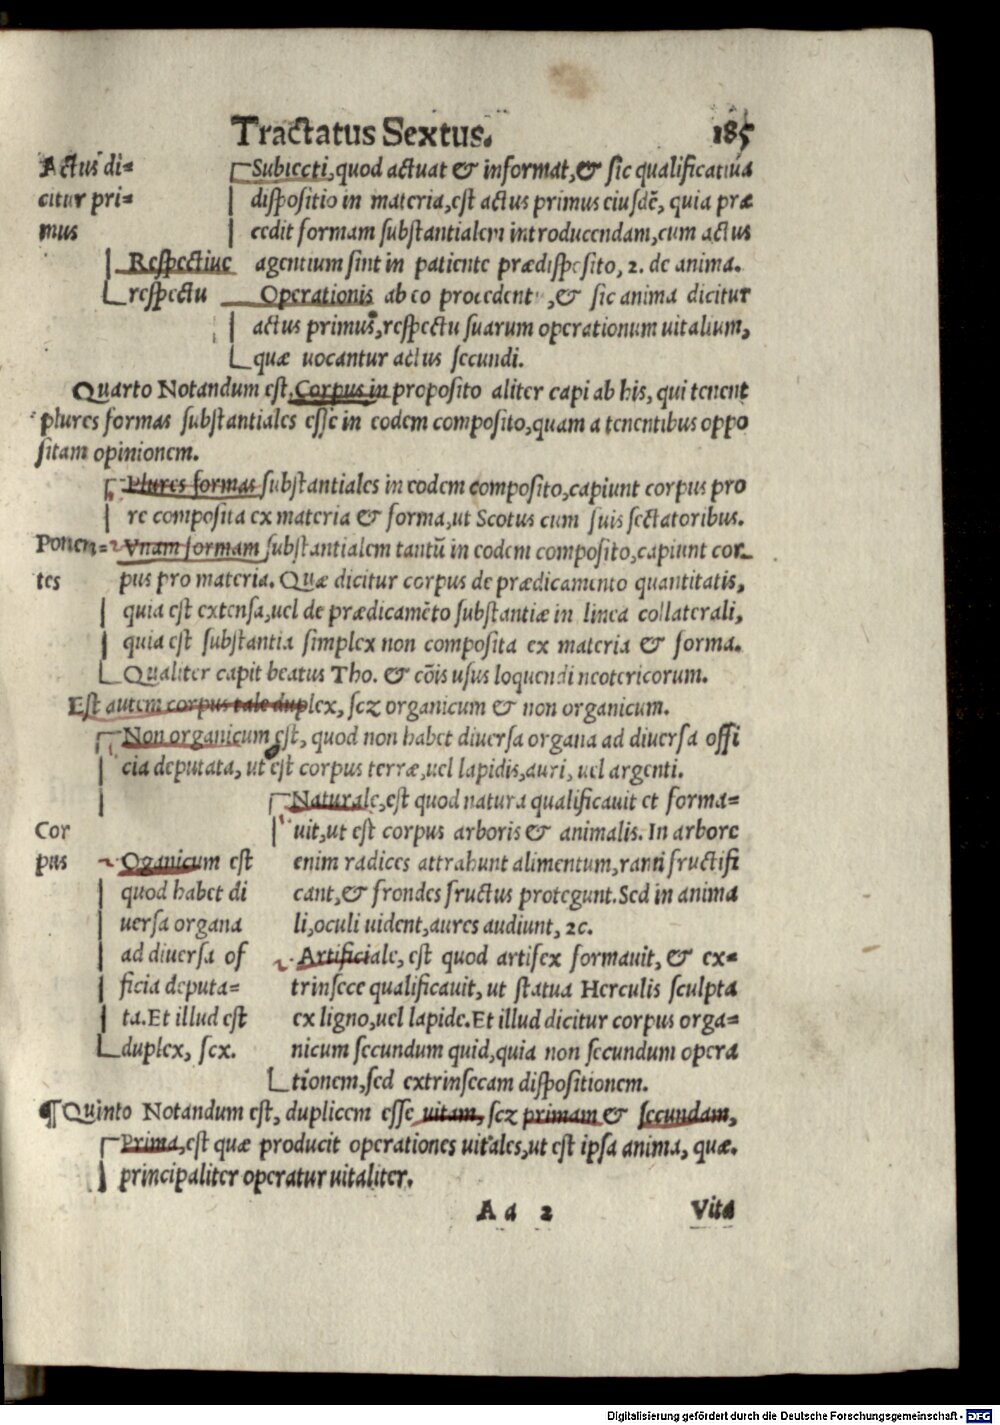 Tractatus Sextus. 185
Actus di=
citur pri=
mus
Respectiue
respectu
Subiecti, quod actuat & informat, & sic qualificatiua
dispositio in materia, est actus primus eiusdē, quia præ
cedit formam substantialem introducendam, cum actus
agentium sint in patiente prædisposito, 2. de anima.
Operationis ab eo procedent , & sic anima dicitur
actus primus, respectu suarum operationum uitalium,
quæ uocantur actus secundi.
Quarto Notandum est, Corpus in proposito aliter capi ab his, qui tenent
plures formas substantiales esse in eodem composito, quam a tenentibus oppo
sitam opinionem.
Ponen=
tes
Plures formas substantiales in eodem composito, capiunt corpus pro
re composita ex materia & forma, ut Scotus cum suis sectatoribus.
Vnam formam substantialem tantū in eodem composito, capiunt cor=
pus pro materia. Quæ dicitur corpus de prædicamento quantitatis,
quia est extensa, uel de prædicamēto substantiæ in linea collaterali,
quia est substantia simplex non composita ex materia & forma.
Qualiter capit beatus Tho. & cōis usus loquendi neotericorum.
Est autem corpus tale duplex, scz organicum & non organicum.
Cor
pus
Non organicum est, quod non habet diuersa organa ad diuersa offi
cia deputata, ut est corpus terræ, uel lapidis, auri, uel argenti.
Oganicum est
quod habet di
uersa organa
ad diuersa of
ficia deputa=
ta. Et illud est
duplex, scx.
Naturale, est quod natura qualificauit et forma=
uit, ut est corpus arboris & animalis. In arbore
enim radices attrahunt alimentum, rami fructifi
cant, & frondes fructus protegunt. Sed in anima
li, oculi uident, aures audiunt, 2c.
Artificiale, est quod artifex formauit, & ex=
trinsece qualificauit, ut statua Herculis sculpta
ex ligno, uel lapide. Et illud dicitur corpus orga=
nicum secundum quid, quia non secundum opera
tionem, sed extrinsecam dispositionem.
¶ Quinto Notandum est, duplicem esse uitam, scz primam & secundam,
Prima, est quæ producit operationes uitales, ut est ipsa anima, quæ.
principaliter operatur uitaliter.
A a 2 Vita
Digitalisierung gefördert durch die Deutsche Forschungsgemeinschaft - DFG